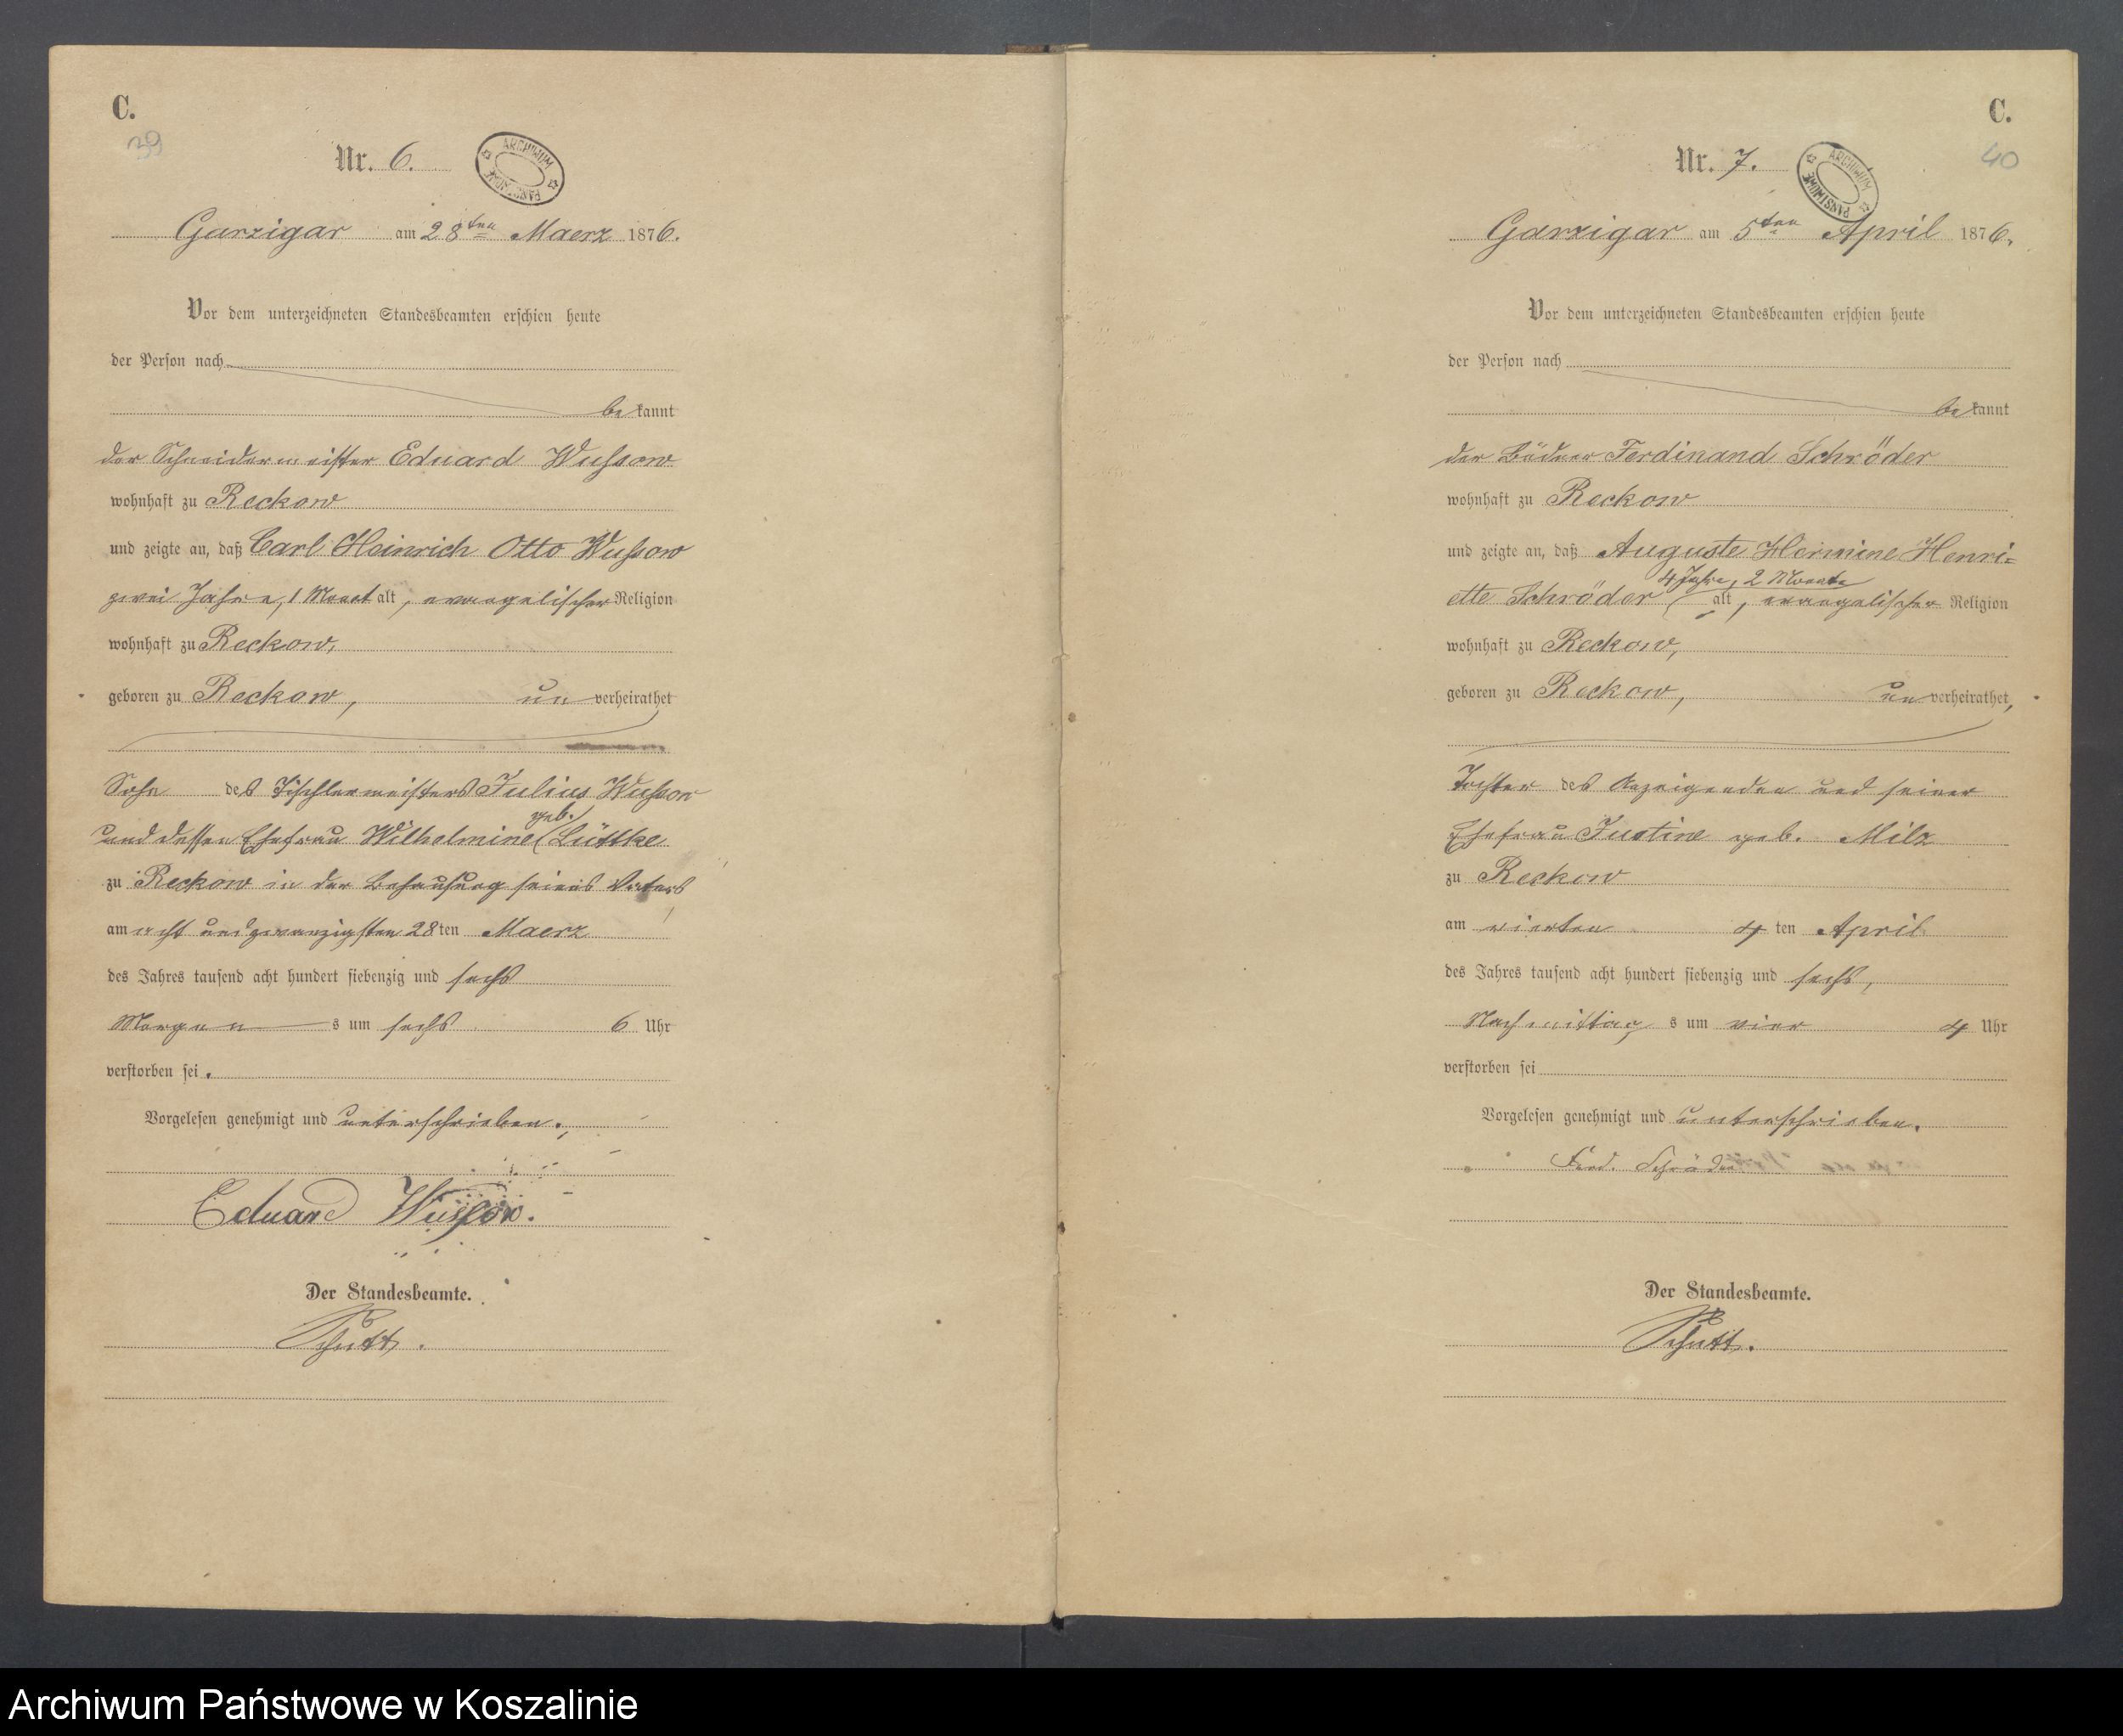 C.
39
Nr. 6.
ARCHIWUM PAŃSTWOWE
Garzigar am 28ten Maerz 1876.
Vor dem unterzeichneten Standesbeamten erschien heute
der Person nach
bekannt
der Schneidermeister Eduard Wussow
wohnhaft zu Reckow
und zeigte an, daß Carl Heinrich Otto Wussow
zwei Jahre, 1 Monat alt, evangelischer Religion
wohnhaft zu Reckow,
geboren zu Reckow, unverheirathet
Sohn des Tischlermeisters Julius Wussow
und dessen Ehefrau Wilhelmine geb. Lüttke
zu Reckow in der Behausung seines Vaters
am acht und zwanzigsten 28ten Maerz
des Jahres tausend acht hundert siebenzig und sechs
Morgens um sechs 6 Uhr
verstorben sei.
Vorgelesen genehmigt und unterschrieben.
Eduard Wussow.
Der Standesbeamte.
Schutt.
C.
40
Nr. 7.
ARCHIWUM PAŃSTWOWE
Garzigar am 5ten April 1876.
Vor dem unterzeichneten Standesbeamten erschien heute
der Person nach
bekannt
der Büdner Ferdinand Schröder
wohnhaft zu Reckow
und zeigte an, daß Auguste Hermine Henri=
ette Schröder 4 Jahre, 2 Monate alt, evangelischer Religion
wohnhaft zu Reckow,
geboren zu Reckow, unverheirathet,
Tochter des Anzeigenden und seiner
Ehefrau Justine geb. Milz
zu Reckow
am vierten 4 ten April
des Jahres tausend acht hundert siebenzig und sechs,
Nachmittags um vier 4 Uhr
verstorben sei
Vorgelesen genehmigt und unterschrieben.
Ferd. Schröder
Der Standesbeamte.
Schutt.
Archiwum Państwowe w Koszalinie